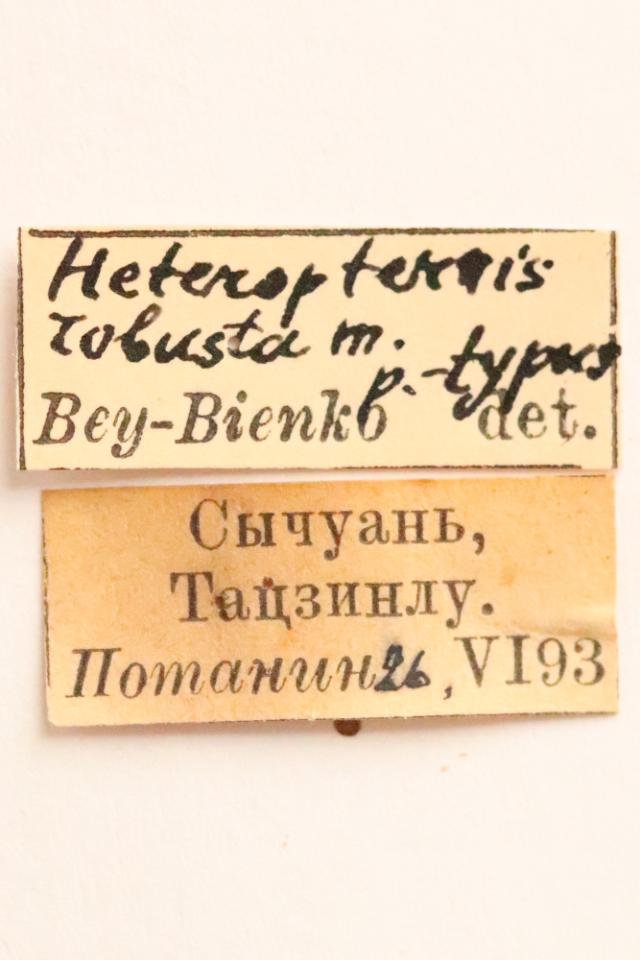 Heteropternis
robusta m.
p.-typus
Bey-Bienko det.
Сычуань,
Тацзинлу.
Потанин 26, VI93